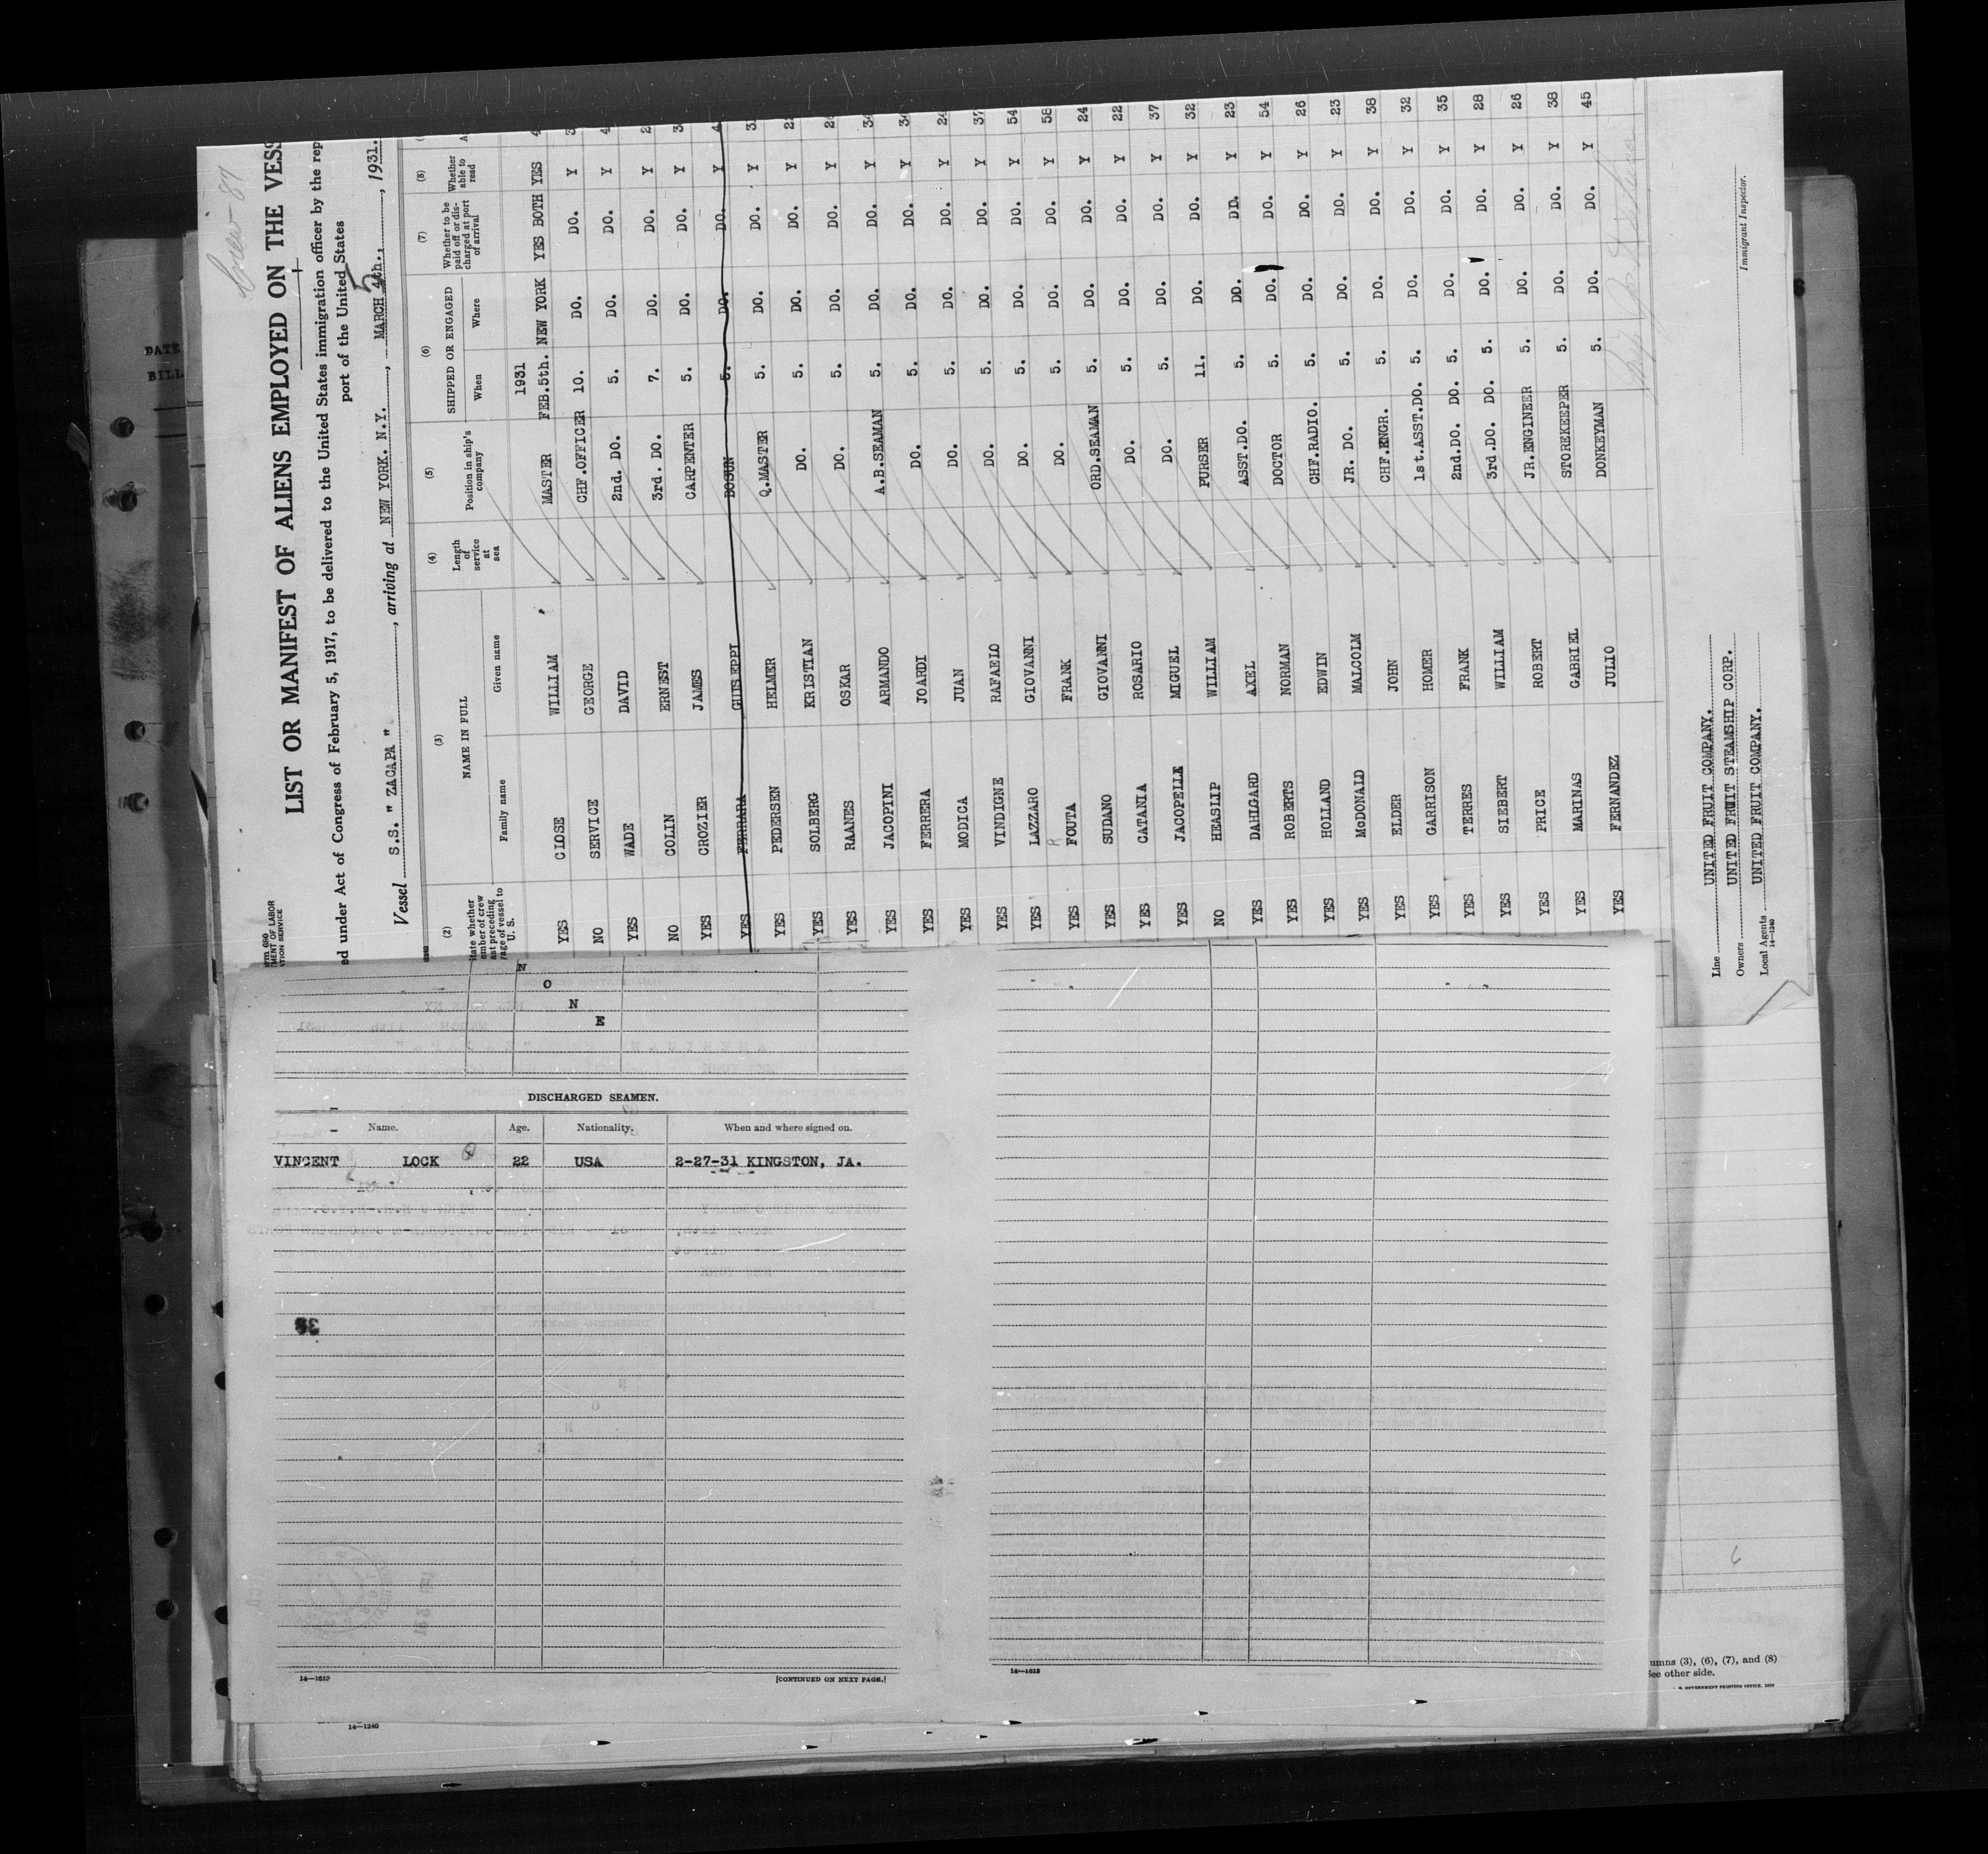 LIST OR MANIFEST OF ALIENS EMPLOYED ON THE VESS
ed under Act of Congress of February 5, 1917, to be delivered to the United States immigration officer by the rep
port of the United States
Vessel S.S. " ZACAPA " , arriving at NEW YORK. N.Y. , MARCH 4th., 5 , 1931.
(2) (3) (4) (5) (6) (7) (8)
NAME IN FULL
Family name Given name
Length of service at sea
Position in ship's company
SHIPPED OR ENGAGED
When Where
Whether to be paid off or discharged at port of arrival
Whether able to read
1931
YES CLOSE WILLIAM MASTER FEB.5th. NEW YORK YES BOTH YES
NO SERVICE GEORGE CHF.OFFICER 10. DO. DO. Y
YES WADE DAVID 2nd. DO. 5. DO. DO. Y
NO COLIN ERNEST 3rd. DO. 7. DO. DO. Y
YES CROZIER JAMES CARPENTER 5. DO. DO. Y
YES FERRARA GUISEPPI BOSUN 5. DO. DO. Y
YES PEDERSEN HELMER Q.MASTER 5. DO. DO. Y
YES SOLBERG KRISTIAN DO. 5. DO. DO. Y
YES RAANES OSKAR DO. 5. DO. DO. Y
YES JACOPINI ARMANDO A.B.SEAMAN 5. DO. DO. Y
YES FERRERA JOARDI DO. 5. DO. DO. Y
YES MODICA JUAN DO. 5. DO. DO. Y
YES VINDIGNE RAFAELO DO. 5. DO. DO. Y 37
YES LAZZARO GIOVANNI DO. 5. DO. DO. Y 54
YES FOUTA FRANK DO. 5. DO. DO. Y 58
YES SUDANO GIOVANNI ORD.SEAMAN 5. DO. DO. Y 24
YES CATANIA ROSARIO DO. 5. DO. DO. Y 22
YES JACOPELLE MIGUEL DO. 5. DO. DO. Y 37
NO HEASLIP WILLIAM PURSER 11. DO. DO. Y 32
YES DAHLGARD AXEL ASST.DO. 5. DO. DO. Y 23
YES ROBERTS NORMAN DOCTOR 5. DO. DO. Y 54
YES HOLLAND EDWIN CHF.RADIO. 5. DO. DO. Y 26
YES McDONALD MALCOLM JR. DO. 5. DO. DO. Y 23
YES ELDER JOHN CHF.ENGR. 5. DO. DO. Y 38
YES GARRISON HOMER 1st.ASST.DO. 5. DO. DO. Y 32
YES TERRES FRANK 2nd.DO. DO. 5. DO. DO. Y 35
YES SIEBERT WILLIAM 3rd.DO. DO. 5. DO. DO. Y 28
YES PRICE ROBERT JR.ENGINEER 5. DO. DO. Y 26
YES MARINAS GABRIEL STOREKEEPER 5. DO. DO. Y 38
YES FERNANDEZ JULIO DONKEYMAN 5. DO. DO. Y 45
Line UNITED FRUIT COMPANY.
Owners UNITED FRUIT STEAMSHIP CORP.
Local Agents UNITED FRUIT COMPANY.
14—1240
Immigrant Inspector.
DATE
BILL
N
O
N
E
DISCHARGED SEAMEN.
Name. Age. Nationality. When and where signed on.
VINCENT LOCK 22 USA 2-27-31 KINGSTON, JA.
14—1613 [CONTINUED ON NEXT PAGE.]
14—1613
umns (3), (6), (7), and (8)
See other side.
14—1240